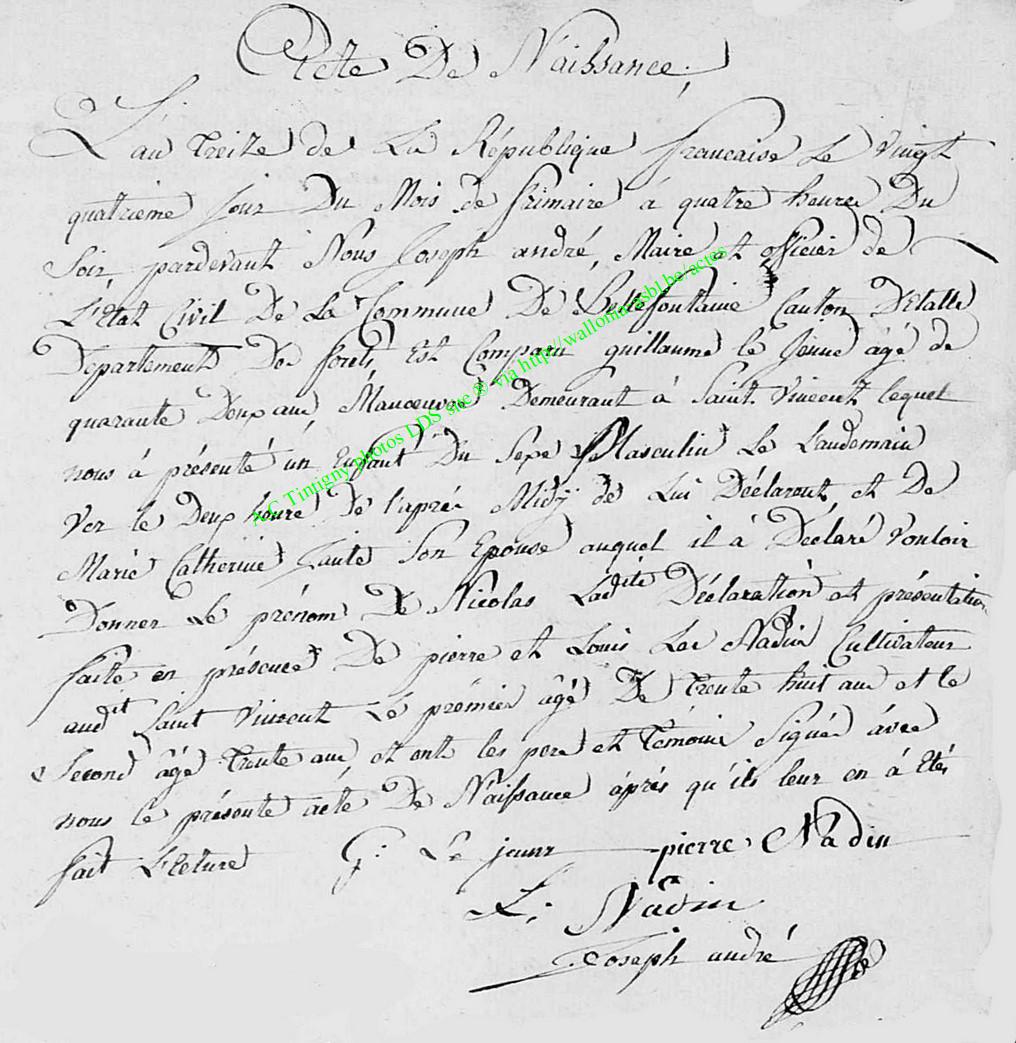 Acte De Naissance
L'an treize de La République française Le Vingt
quatrieme Jour Du Mois de frimaire à quatre heures Du
Soir pardevant Nous Joseph andré, Maire et officier de
L'Etat Civil De La Commune De Bellefontaine Canton D'Etalle
Departement De forets Est Comparu guillaume le Jeune âgé de
quarante Deux ans Manoeuvre Demeurant à Saint Vincent lequel
nous à présenté un Enfant Du Sexe Masculin Le Landemain
Ver le Deux houre De l'après Midÿ de Lui Déclarant et De
Marie Catherine Son Epouse auquel il à Déclaré Vouloir
Donner Le prénom De Nicolas Ladite Déclaration et présentation
faite en présence De pierre et Louis Les Nadin Cultivateur
audit Saint Vincent Le prémier âgé De trente huit ans et le
Second âgé trente ans et ont les pere et témoins Signés avec
nous le présente acte De Naissance après qu'ils leur en à Etés
fait L'Ecture G: Le jeune pierre Nadin
L: Nadin
Joseph andré
AC Tintigny photos LDS site ® via http://wallonia.asbl.be/actes